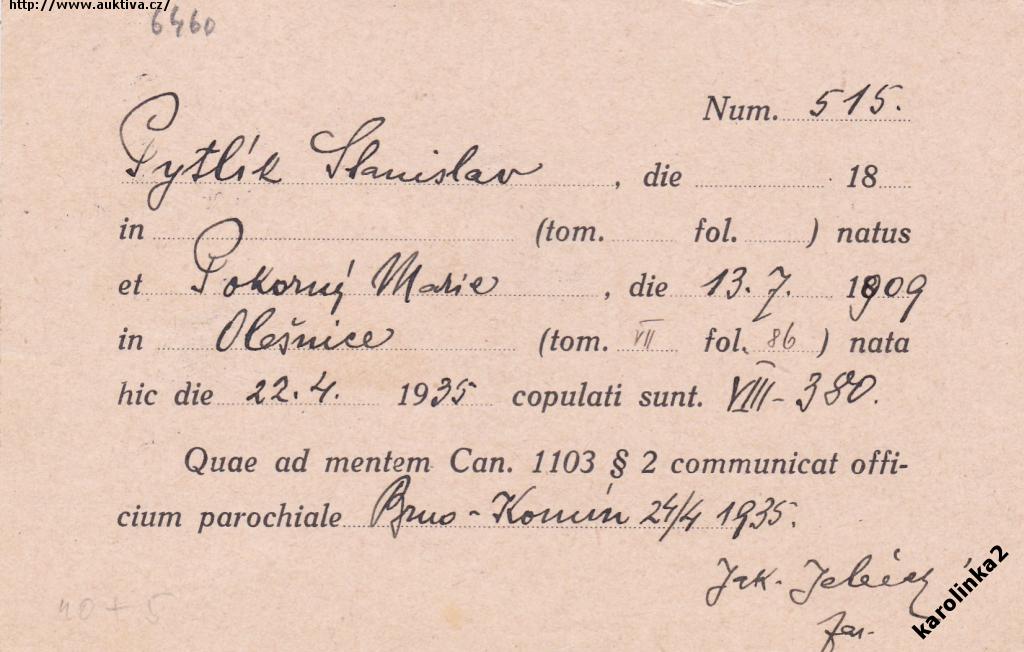 http://www.auktiva.cz/
6460
Num. 515.
Pytlík Stanislav, die 18
in (tom. fol. ) natus
et Pokorný Marie, die 13.7. 1909
in Olešnice (tom. VII fol. 86 ) nata
hic die 22.4. 1935 copulati sunt. VIII-380.
Quae ad mentem Can. 1103 § 2 communicat offi-
cium parochiale Brno-Komín 24/4 1935.
Jak.
far.
40+5
karolinka2